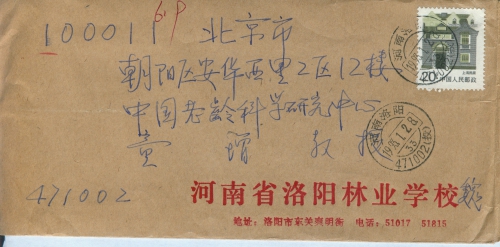 100011
北京市
朝阳区安华西里2区12楼
中国老龄科学研究中心
20
中国人民邮政
河南洛阳
471002(投)
471002
河南省洛阳林业学校
地址：洛阳市东关爽明街 电话：51017 51815